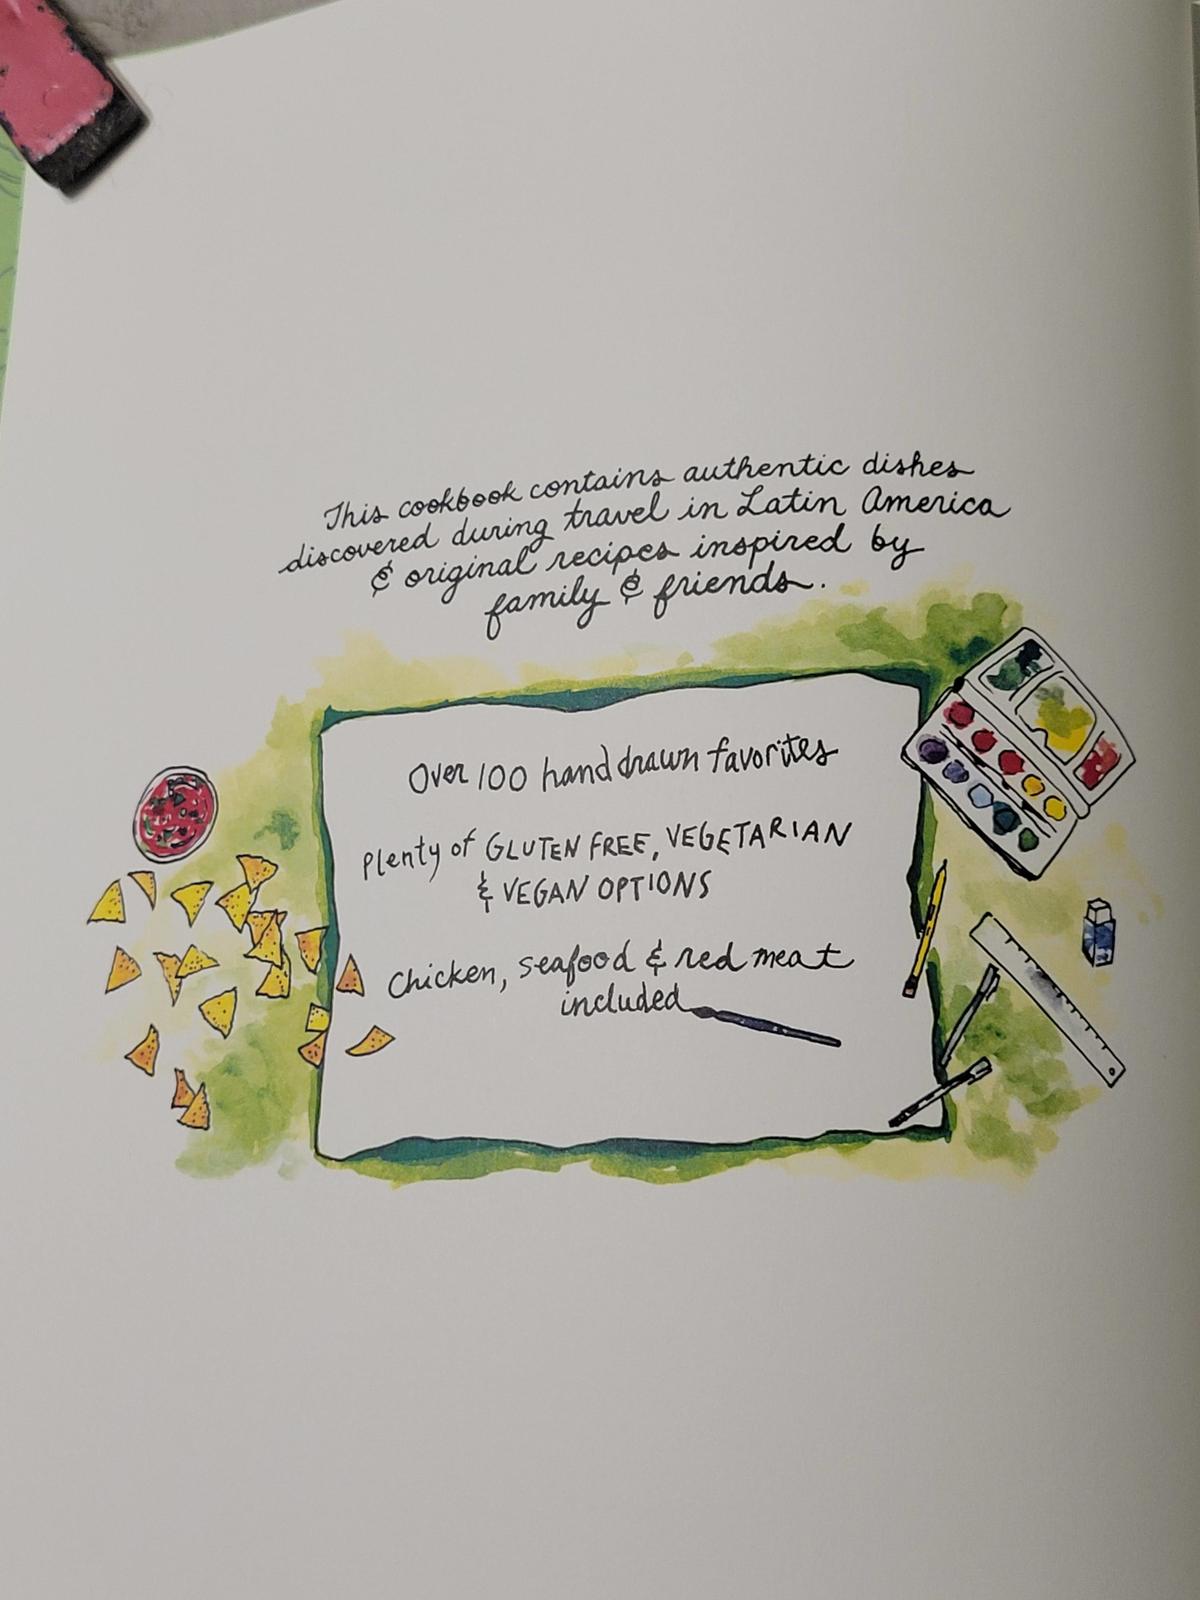 This cookbook contains authentic dishes
discovered during travel in Latin America
& original recipes inspired by
family & friends.
Over 100 hand drawn favorites
Plenty of GLUTEN FREE, VEGETARIAN
& VEGAN OPTIONS
Chicken, seafood & red meat
included